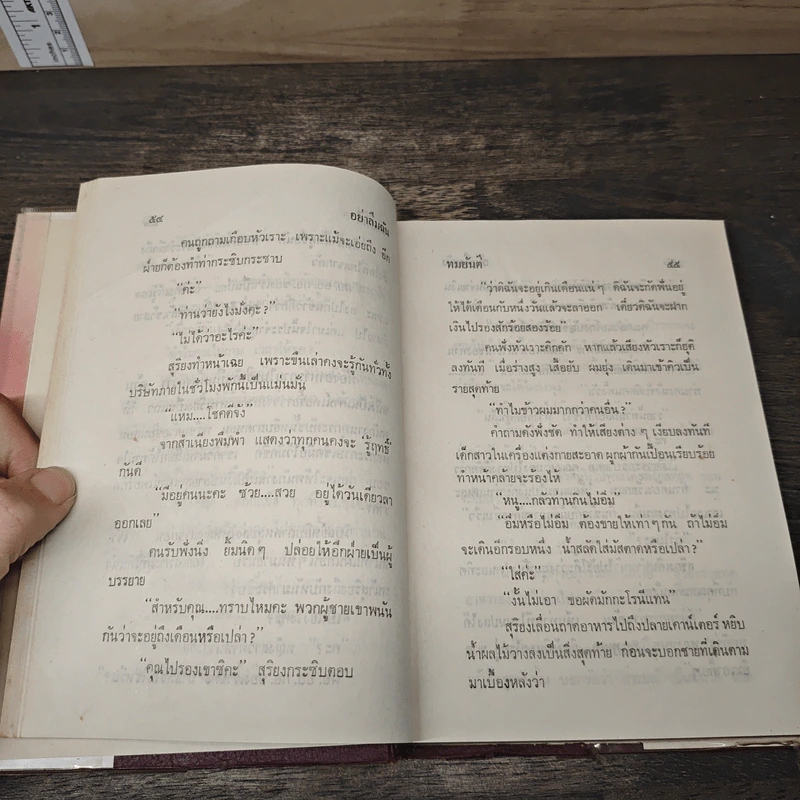 ๕๔ อย่าลืมฉัน
คนถูกถามเกือบหัวเราะ เพราะแม้จะเอ่ยถึง อีก
ฝ่ายก็ต้องทำท่ากระซิบกระซาบ
“ค่ะ”
“ท่านว่ายังไงมั่งคะ?”
“ไม่ได้ว่าอะไรค่ะ”
สุริยงทำหน้าเฉย เพราะขืนเล่าคงจะรู้กันทั่วทั้ง
บริษัทภายในชั่วโมงพักนี้เป็นแม่นมั่น
“แหม....โชคดีจัง”
จากสำเนียงพึมพำ แสดงว่าทุกคนคงจะ ‘รู้ฤทธิ์’
กันดี
“มีอยู่คนนะคะ ซ้วย....สวย อยู่ได้วันเดียวลา
ออกเลย”
คนรับฟังนิ่ง ยิ้มนิดๆ ปล่อยให้อีกฝ่ายเป็นผู้
บรรยาย
“สำหรับคุณ....ทราบไหมคะ พวกผู้ชายเขาพนัน
กันว่าจะอยู่ถึงเดือนหรือเปล่า?”
“คุณไปรองเขาซิคะ” สุริยงกระซิบตอบ
ทมยันตี ๕๕
“ว่าดิฉันจะอยู่เกินเดือนแน่ๆ ดิฉันจะกัดฟันอยู่
ให้ได้เดือนกับหนึ่งวันแล้วจะลาออก เดี๋ยวดิฉันจะฝาก
เงินไปรองสักร้อยสองร้อย”
คนฟังหัวเราะคิกคัก หากแล้วเสียงหัวเราะก็ยุติ
ลงทันที เมื่อร่างสูง เสื้อยับ ผมยุ่ง เดินมาเข้าคิวเป็น
รายสุดท้าย
“ทำไมข้าวผมมากกว่าคนอื่น?”
คำถามดังฟังชัด ทำให้เสียงต่าง ๆ เงียบลงทันที
เด็กสาวในเครื่องแต่งกายสะอาด ผูกผ้ากันเปื้อนเรียบร้อย
ทำหน้าคล้ายจะร้องไห้
“หนู....กลัวท่านกินไม่อิ่ม”
“อิ่มหรือไม่อิ่ม ต้องขายให้เท่าๆกัน ถ้าไม่อิ่ม
จะเดินอีกรอบหนึ่ง น้ำสลัดใส่มัสตาดหรือเปล่า?”
“ใส่ค่ะ”
“งั้นไม่เอา ขอผัดมักกะโรนีแทน”
สุริยงเลื่อนถาดอาหารไปถึงปลายเคาน์เตอร์ หยิบ
น้ำผลไม้วางลงเป็นสิ่งสุดท้าย ก่อนจะบอกชายที่เดินตาม
มาเบื้องหลังว่า